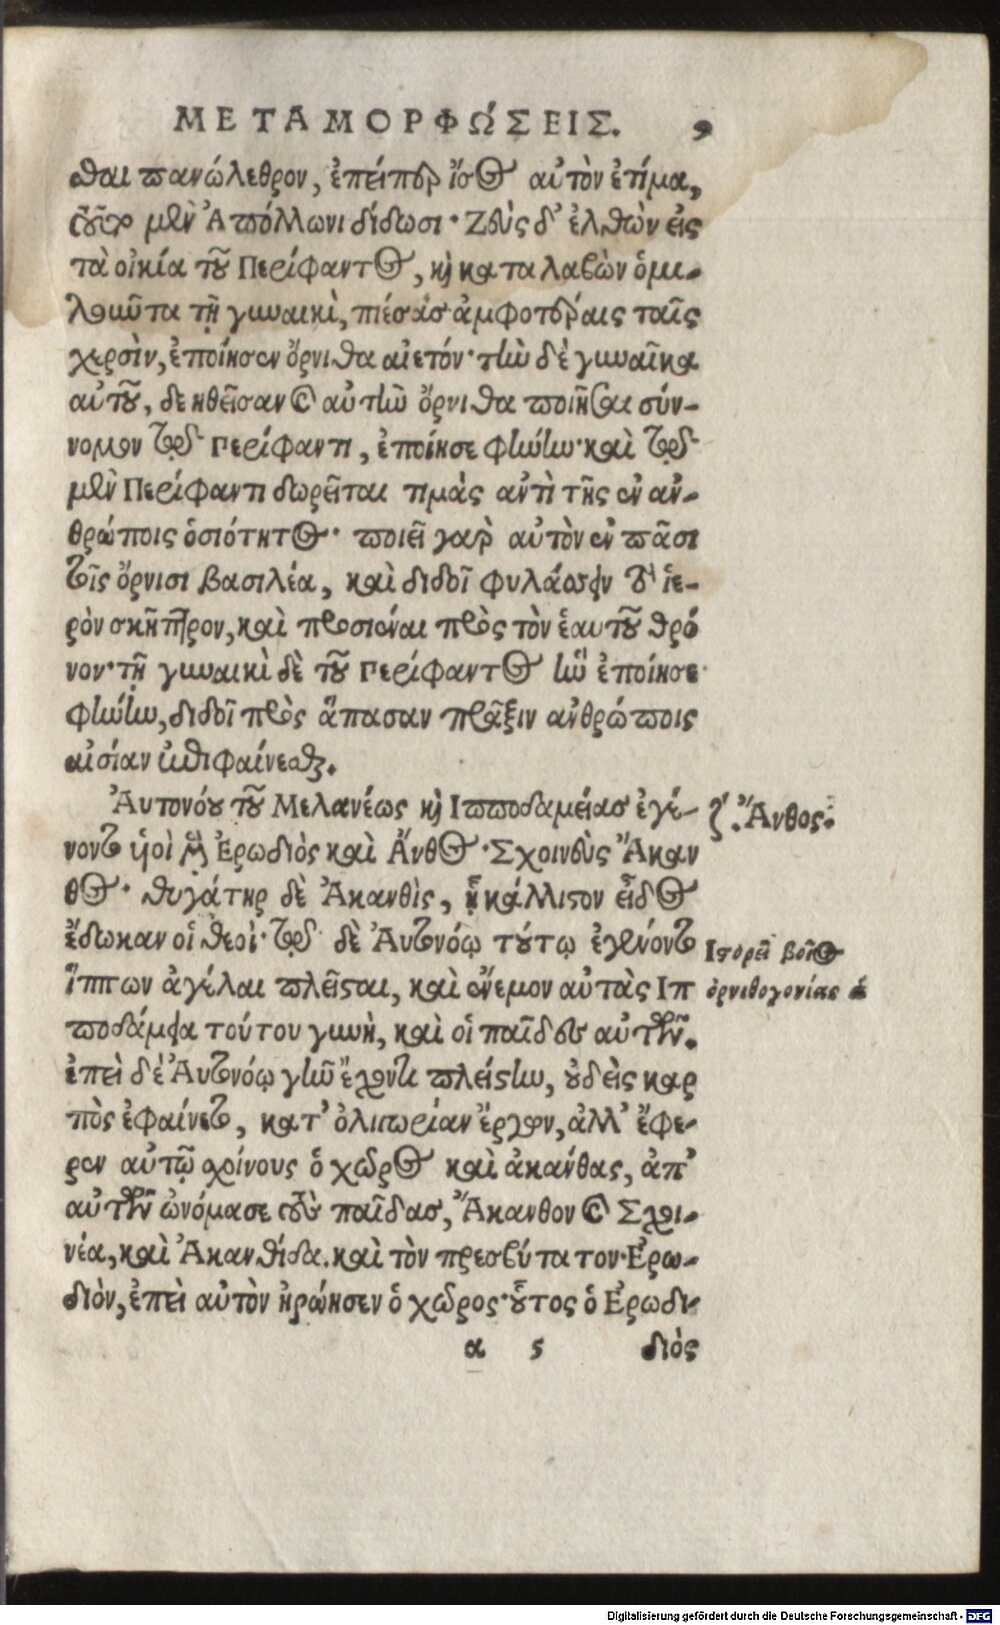 ΜΕΤΑΜΟΡΦΏΣΕΙΣ. 9
σθαι πανώλεθρον, ἐπείπερ ἴσος αὐτὸν ἐτίμα,
τοῦτο μὲν Ἀπόλλωνι δίδωσι· Ζεὺς δ' ἐλθὼν εἰς
τὰ οἰκία τοῦ Περίφαντος, καὶ καταλαβὼν ὁμι-
λοῦντα τῇ γυναικὶ, πιέσας ἀμφοτέραις ταῖς
χερσὶν, ἐποίησεν ὄρνιθα αἰετόν· τὴν δὲ γυναῖκα
αὐτοῦ, δεηθεῖσαν καὶ αὐτὴν ὄρνιθα ποιῆσαι σύν-
νομον τῷ Περίφαντι, ἐποίησε φήνην· καὶ τῷ
μὲν Περίφαντι δωρεῖται τιμὰς αντὶ τῆς ἐν αν-
θρώποις ὁσιότητος· ποιεῖ γαρ αὐτὸν ἐν πᾶσι
τοῖς ὄρνισι βασιλέα, καὶ διδοῖ φυλάσσειν τὸ ἱε-
ρὸν σκῆπτρον, καὶ προσιέναι πρὸς τὸν ἑαυτοῦ θρό
νον· τῇ γυναικὶ δὲ τοῦ Περίφαντος ἣν ἐποίησε
φήνην, διδοῖ πρὸς ἅπασαν πρᾶξιν ανθρώποις
αἰσίαν ἐπιφαίνεσθαι.
Ἀυτονόου τοῦ Μελανέως καὶ Ἱπποδαμείας ἐγέ-
νοντο υἱοὶ μὲν Ἐρωδιὸς καὶ Ἄνθος· Σχοινεὺς Ἄκαν
θος· θυγάτηρ δὲ Ἀκανθὶς, ᾗ κάλλιστον εἶδος
ἔδωκαν οἱ θεοί· τῷ δὲ Ἀυτονόῳ τούτῳ ἐγένοντο
ἵππων ἀγέλαι πλεῖσται, καὶ ἔνεμον αὐτὰς Ιπ
ποδάμεια τούτου γυνὴ, καὶ οἱ παῖδες αὐτῶν.
ἐπεὶ δὲ Ἀυτονόῳ γῆν ἔχοντι πλείστην, οὐδεὶς καρ
πὸς ἐφαίνετο, κατ' ὀλιγωρίαν ἔργων, ἀλλ' ἔφε-
ρεν αὐτῷ σχοίνους ὁ χῶρος καὶ ἀκάνθας, ἀπ'
αὐτῶν ὠνόμασε τοὺς παῖδας, Ἄκανθον καὶ Σχοι-
νέα, καὶ Ἀκανθίδα. καὶ τὸν πρεσβύτατον· Ἐρω-
διὸν, ἐπεὶ αὐτὸν ἠρώησεν ὁ χῶρος· οὗτος ὁ Ἐρωδι-
α 5 διὸς
ζ'. Ἄνθος.
Ιστορεῖ βοῖος
ὀρνιθογονίας ά